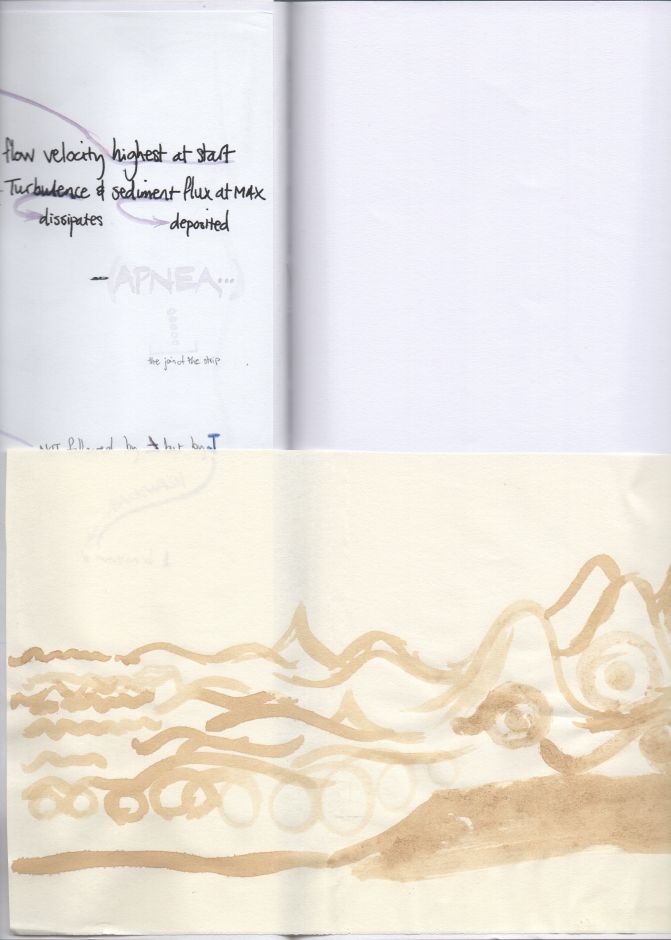 flow velocity highest at start
Turbulence & sediment flux at MAX
dissipates deposited
- (APNEA...)
the join of the strip
NOT followed by but by